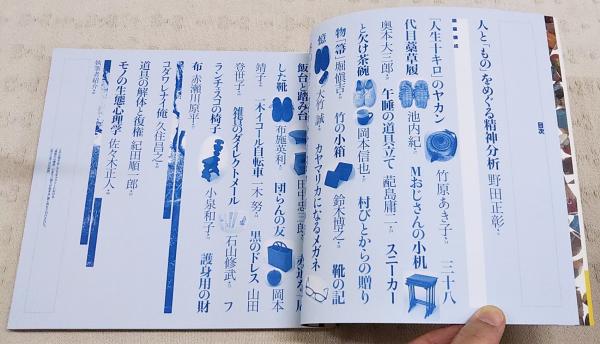 目次
人と「もの」をめぐる精神分析 野田正彰
誌面構成
「人生十キロ」のヤカン 竹原あき子 三十八
代目藁草履 池内紀 Mおじさんの小机
奥本大三郎 午睡の道具立て 蓜島庸二 スニーカー
と欠け茶碗 岡本信也 村びとからの贈り
物「箒」堀愼吉 竹の小箱 鈴木博之 靴の記
憶 大竹誠 カヤマリカになるメガネ
飯台と踏み台 田中忠三郎
した靴 布施英利 団らんの友 岡本
靖子 一木イコール自転車 一木努 黒のドレス 山田
登世子 雑貨のダイレクトメール 石山修武 フ
ランチェスコの椅子 小泉和子 護身用の財
布 赤瀬川原平
コダワレナイ俺 久住昌之
道具の解体と復権 紀田順一郎
モノの生態心理学 佐々木正人
執筆者紹介